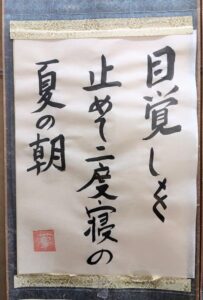 目覚しを
止めて二度寝の
夏の朝